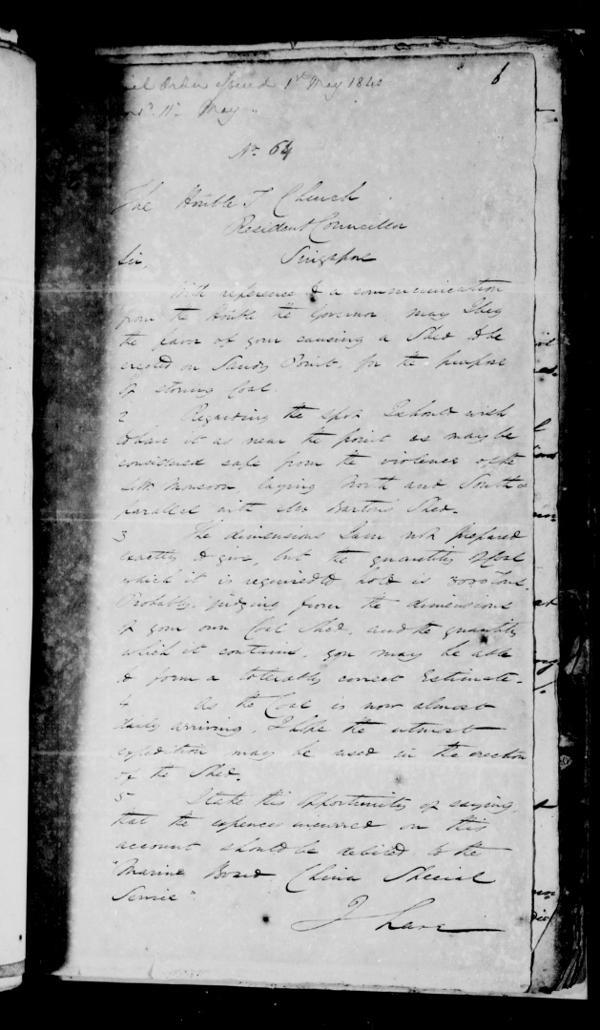 Order Issued 1st May 1840
11 May
6
No. 64
The Honble T Church
Resident Councillor
Singapore
Sir,
With reference to a communication
from the Honble the Governor may I beg
the favor of your causing a Shed to be
erected on Sandy Point, for the purpose
of storing Coal.
2 Regarding the spot I should wish
to have it as near the point as may be
considered safe from the violence of the
SW. Monsoon laying North and South &
parallel with Shed.
3 The dimensions I am not prepared
exactly to give, but the quantity of Coal
which it is required to hold is Tons.
Probably judging from the dimensions
of your own Coal Shed, and the quantity
which it contains, you may be able
to form a tolerably correct Estimate.
4 As the Coal is now almost
daily arriving, I hope the utmost
expedition may be used in the erection
of the Shed.
5 I take this opportunity of saying,
that the expences incurred on this
account should be debited to the
"Marine Board China Special
Service"
J